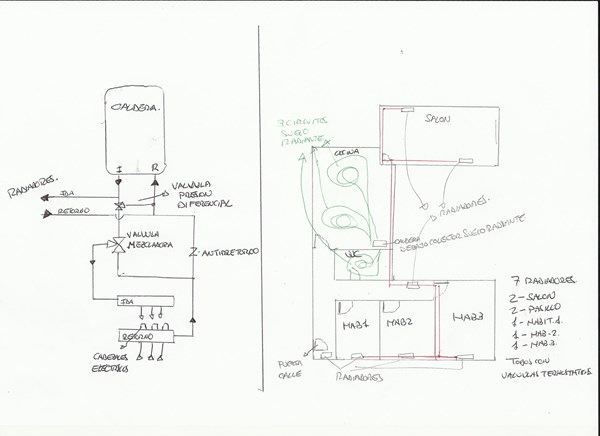 CALDERA.
I R
RADIADORES.
IDA
RETORNO
VALVULA
PRESION
DIFERENCIAL
VALVULA
MEZCLADORA
ANTIRETORNO
IDA
RETORNO
CABEZALES
ELECTRICOS
3 CIRCUITOS
SUELO
RADIANTE
COCINA
SALON
RADIADORES.
CALDERA
DEBAJO COLECTOR SUELO RADIANTE
WC
HAB1
HAB2
HAB3
PUERTA
CALLE
RADIADORES
7 RADIADORES.
2 - SALON
2 - PASILLO
1 - HABIT. 1.
1 - HAB - 2.
1 - HAB 3.
TODOS CON
VALVULAS TERMOSTATICAS